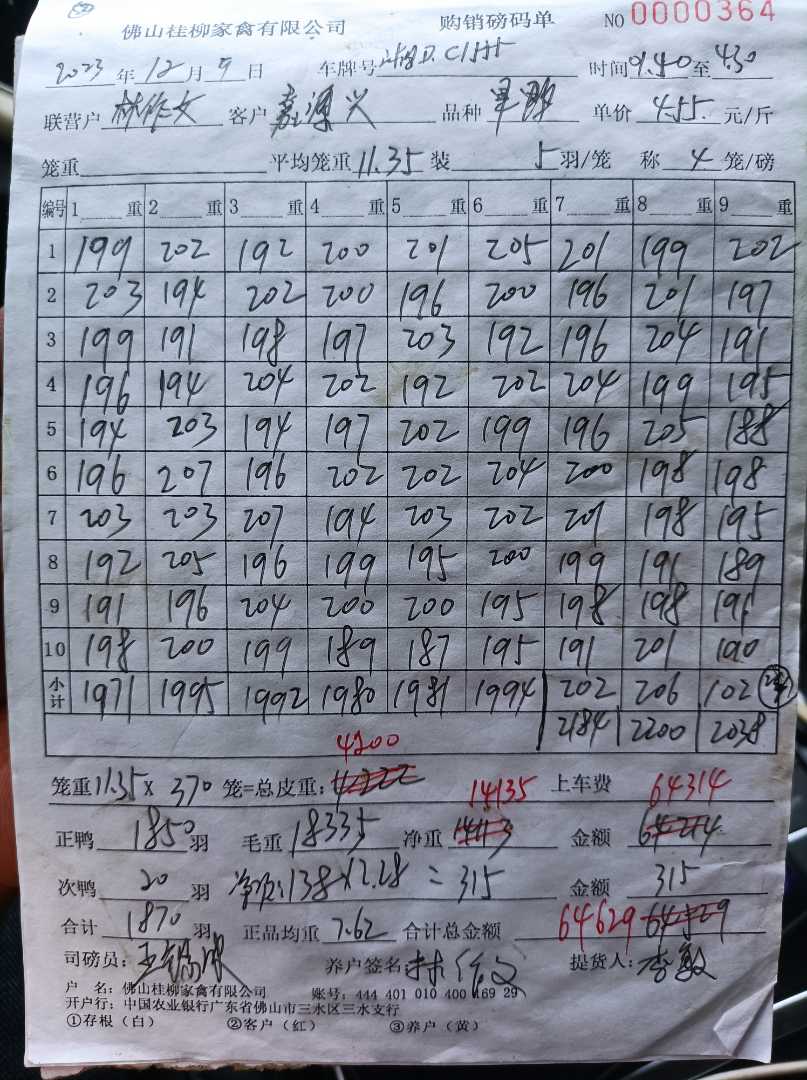 佛山桂柳家禽有限公司 购销磅码单 NO 0000364
2023年12月9日 车牌号 时间9.40至4.30
联营户 林作文 客户 品种 单价 4.55 元/斤
笼重 平均笼重 11.35 装 5 羽/笼 称 4 笼/磅
编号 1 重 2 重 3 重 4 重 5 重 6 重 7 重 8 重 9 重
1 199 202 192 200 201 205 201 199 202
2 203 194 202 200 196 200 196 201 197
3 199 191 198 197 203 192 196 204 191
4 196 194 204 202 192 202 204 199 195
5 194 203 194 197 202 199 196 205 188
6 196 207 196 202 202 204 200 198 198
7 203 203 207 194 203 202 201 198 195
8 192 205 196 199 195 200 199 191 189
9 191 196 204 200 200 195 198 198 191
10 198 200 199 189 187 195 191 201 190
小计 1971 1995 1992 1980 1981 1994 202 206 102
4200 2184 2200 2038
笼重 11.35 x 370 笼=总皮重: 14135 上车费 64314
正鸭 1850 羽 毛重 18335 净重 金额
次鸭 20 羽 138 x 2.28 = 315 金额 315
合计 1870 羽 正品均重 7.62 合计总金额 64629
司磅员: 养户签名: 林作文 提货人: 李敏
户 名: 佛山桂柳家禽有限公司 账号: 444 401 010 400 169 29
开户行: 中国农业银行广东省佛山市三水区三水支行
①存根(白) ②客户(红) ③养户(黄)